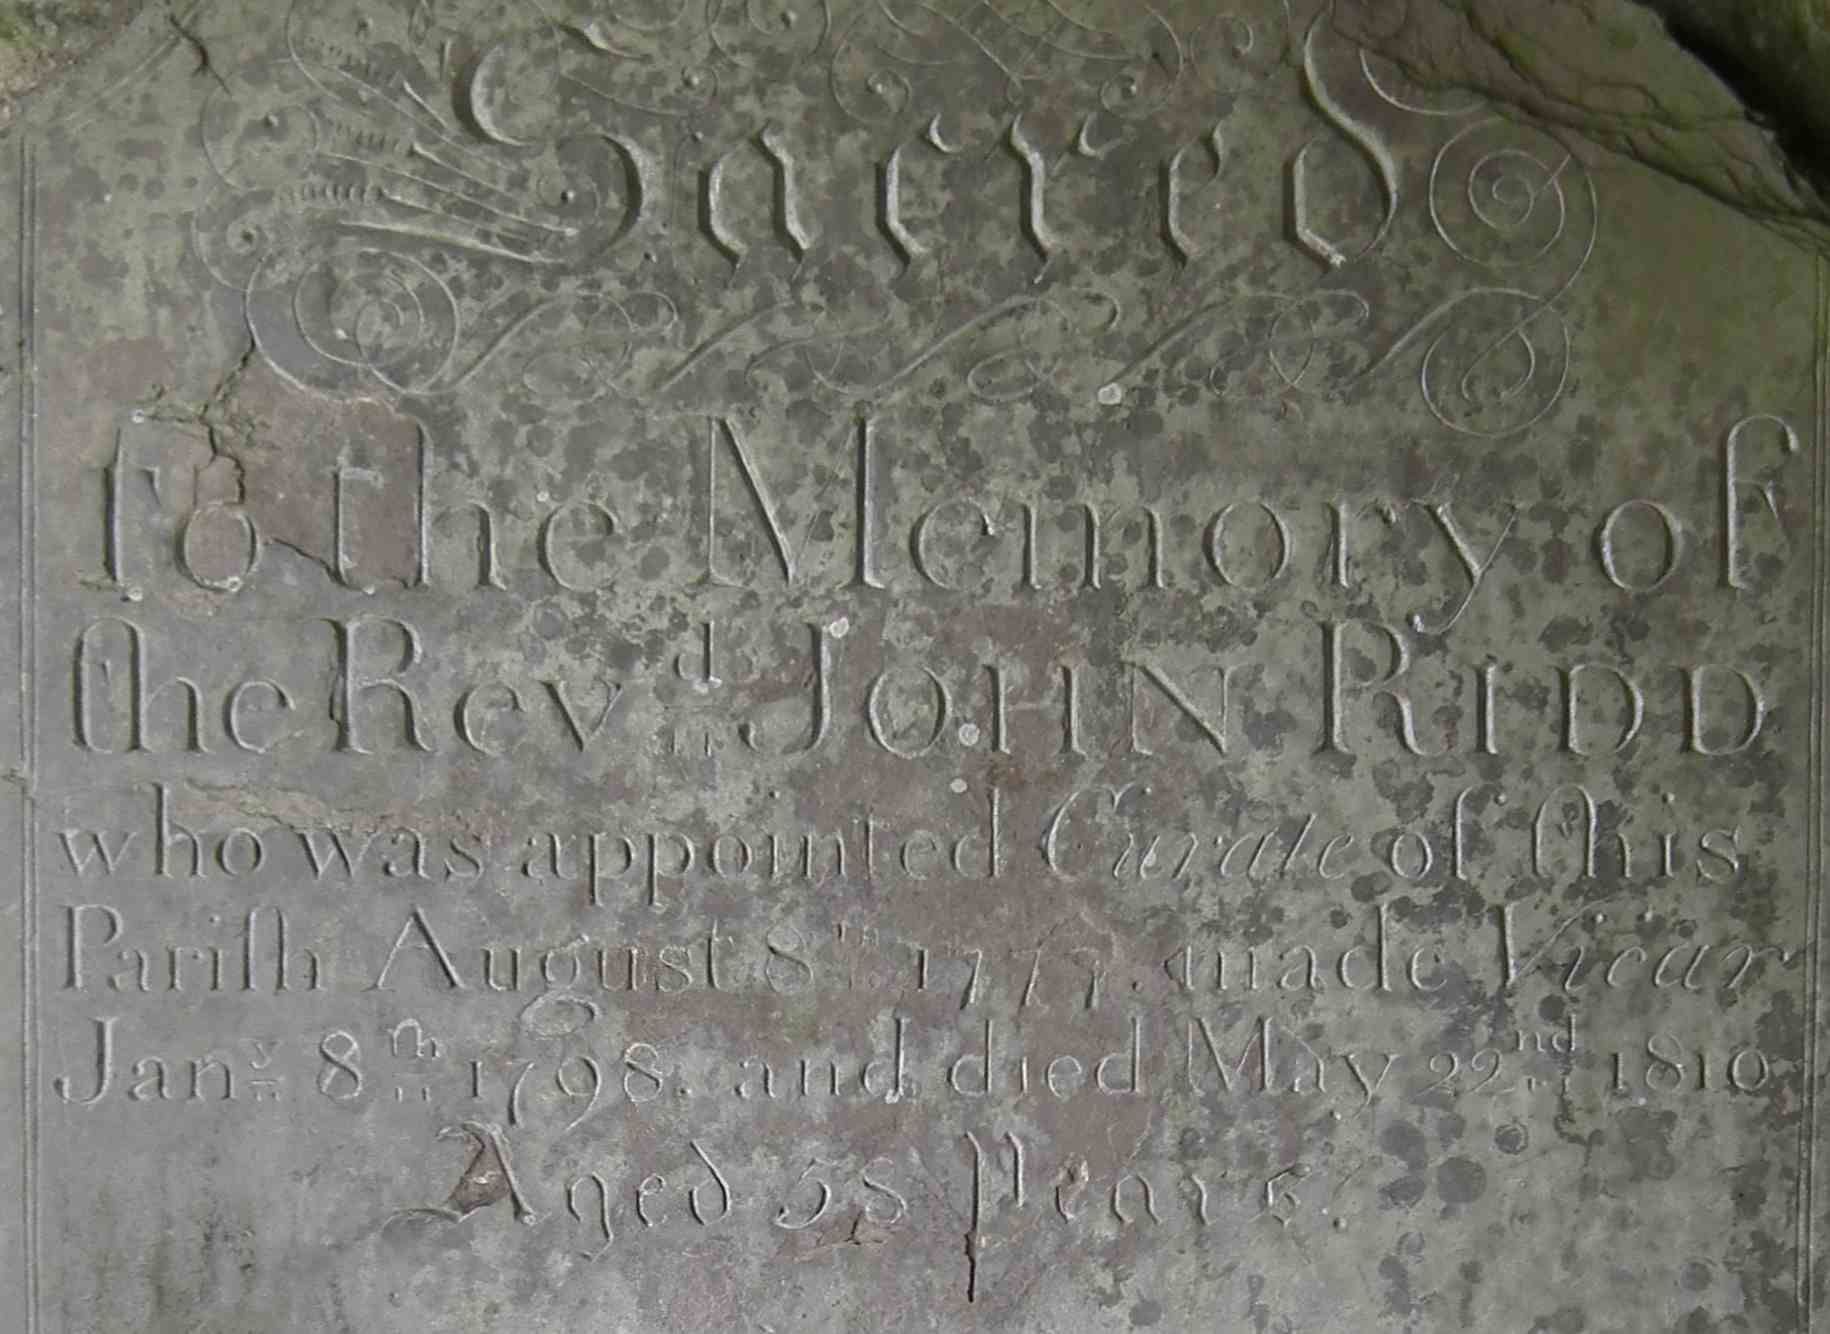 Sacred
To the Memory of
the Revd JOHN RIDD
who was appointed Curate of this
Pariſh August 8th 1777. made Vicar
Jany 8th 1798. and died May 22nd 1810
Aged 58 Years.